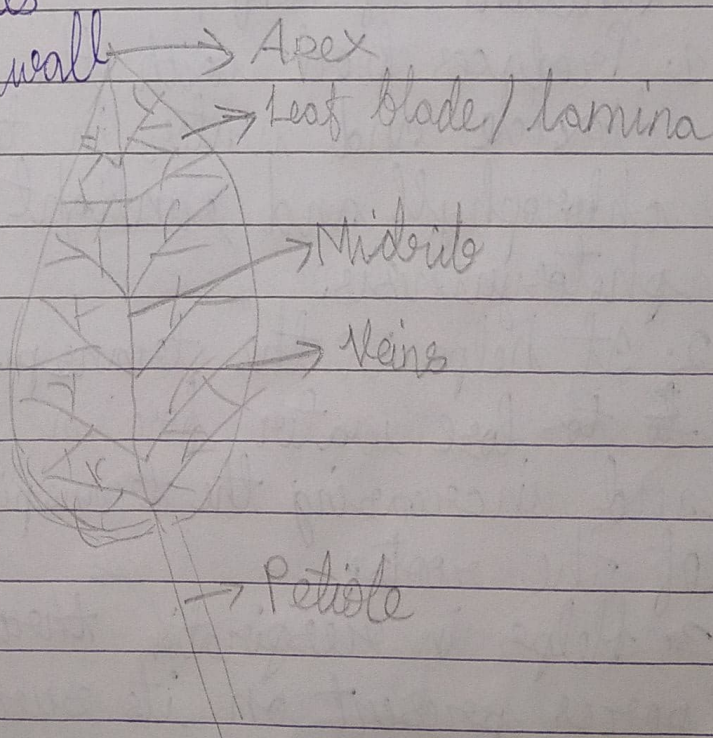 wall
Apex
Leaf blade / lamina
Midrib
Veins
Petiole